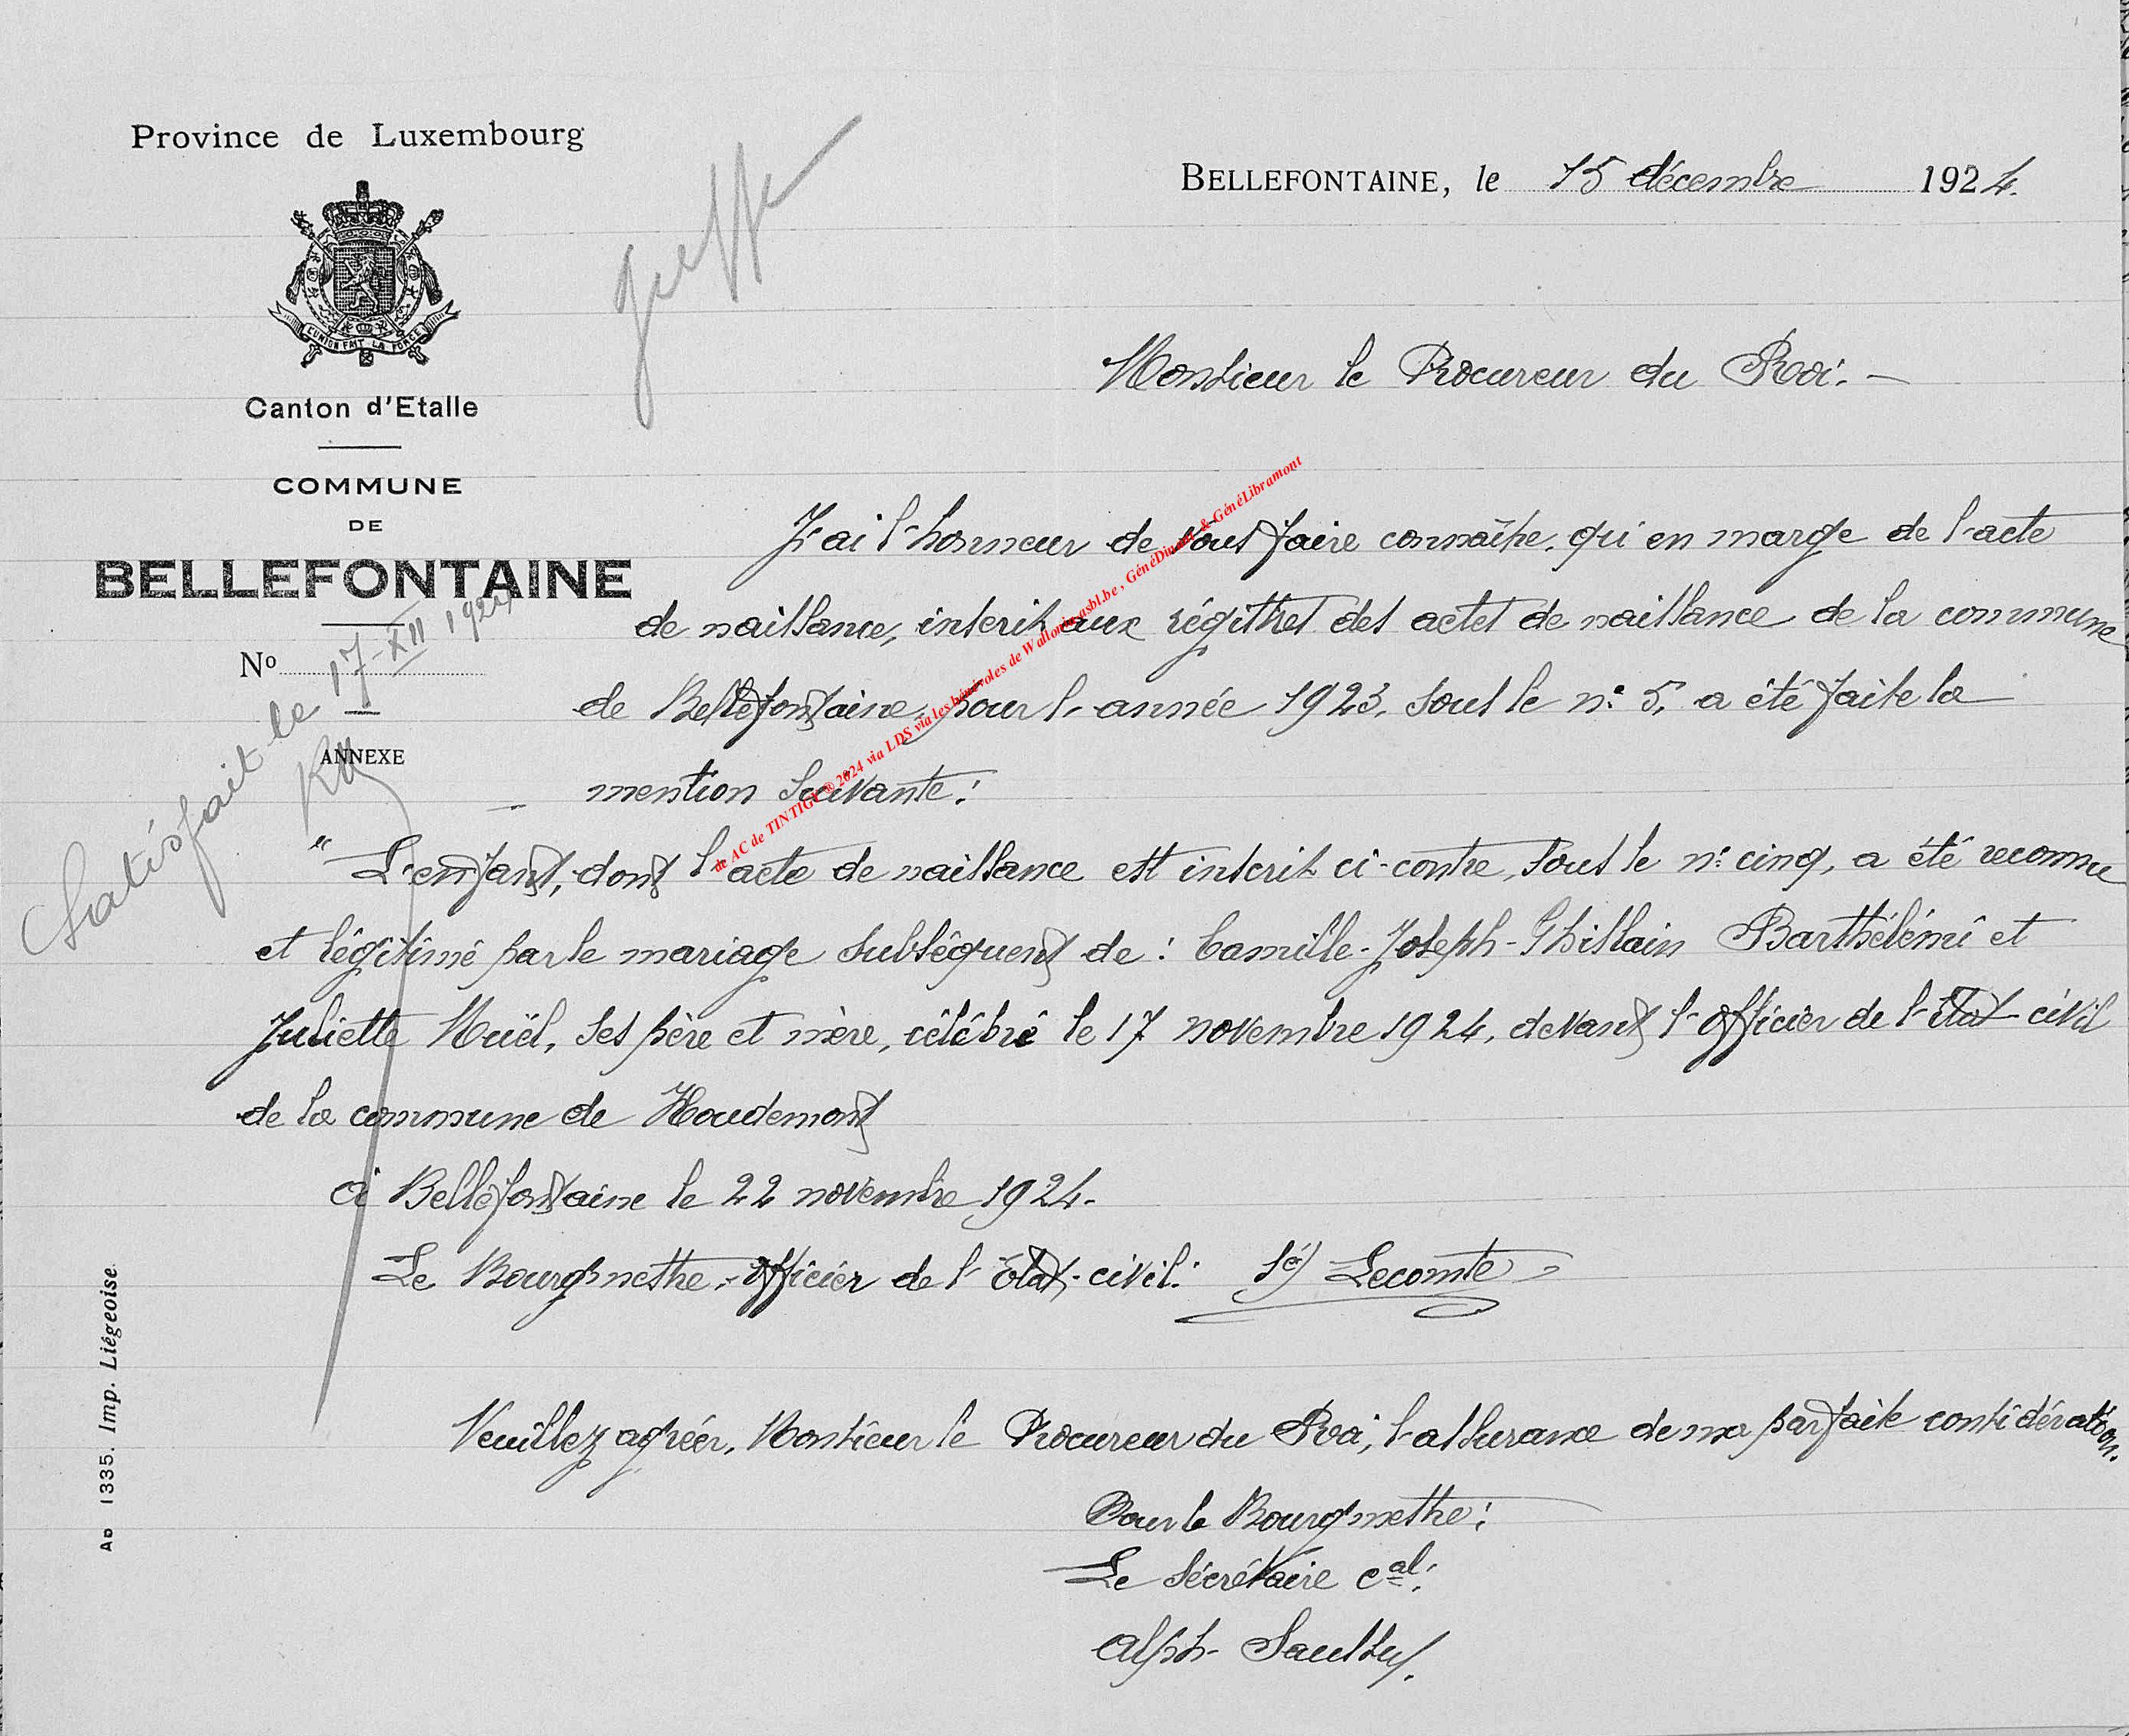 Province de Luxembourg
L'UNION FAIT LA FORCE
Canton d'Etalle
COMMUNE
DE
BELLEFONTAINE
No
ANNEXE
Satisfait le 17-XII 1924
greffe
BELLEFONTAINE, le 15 décembre 1924.
Monsieur le Procureur du Roi. —
J'ai l'honneur de vous faire connaître, qu'en marge de l'acte
de naissance, inscrit aux régistres des actes de naissance de la commune
de Bellefontaine, pour l'année 1923, sous le n° 5, a été faite la
mention suivante :
" L'enfant, dont l'acte de naissance est inscrit ci-contre, sous le n° cinq, a été reconnu
et légitimé par le mariage subséquent de : Camille-Joseph-Ghislain Barthélémi et
Juliette Muël, ses père et mère, célébré le 17 novembre 1924, devant l'officier de l'état civil
de la commune de Houdemont
à Bellefontaine le 22 novembre 1924.
Le Bourgmestre, officier de l'Etat-civil: sé) Lecomte
Veuillez agréer, Monsieur le Procureur du Roi, l'assurance de ma parfaite considération.
Pour le Bourgmestre :
Le Sécrétaire cal:
Alph.
de AC de TINTIGNY © 2024 via LDS via les bénévoles de Walloniaasbl.be, GénéDinant & GénéLibramont
AD 1335. Imp. Liégeoise